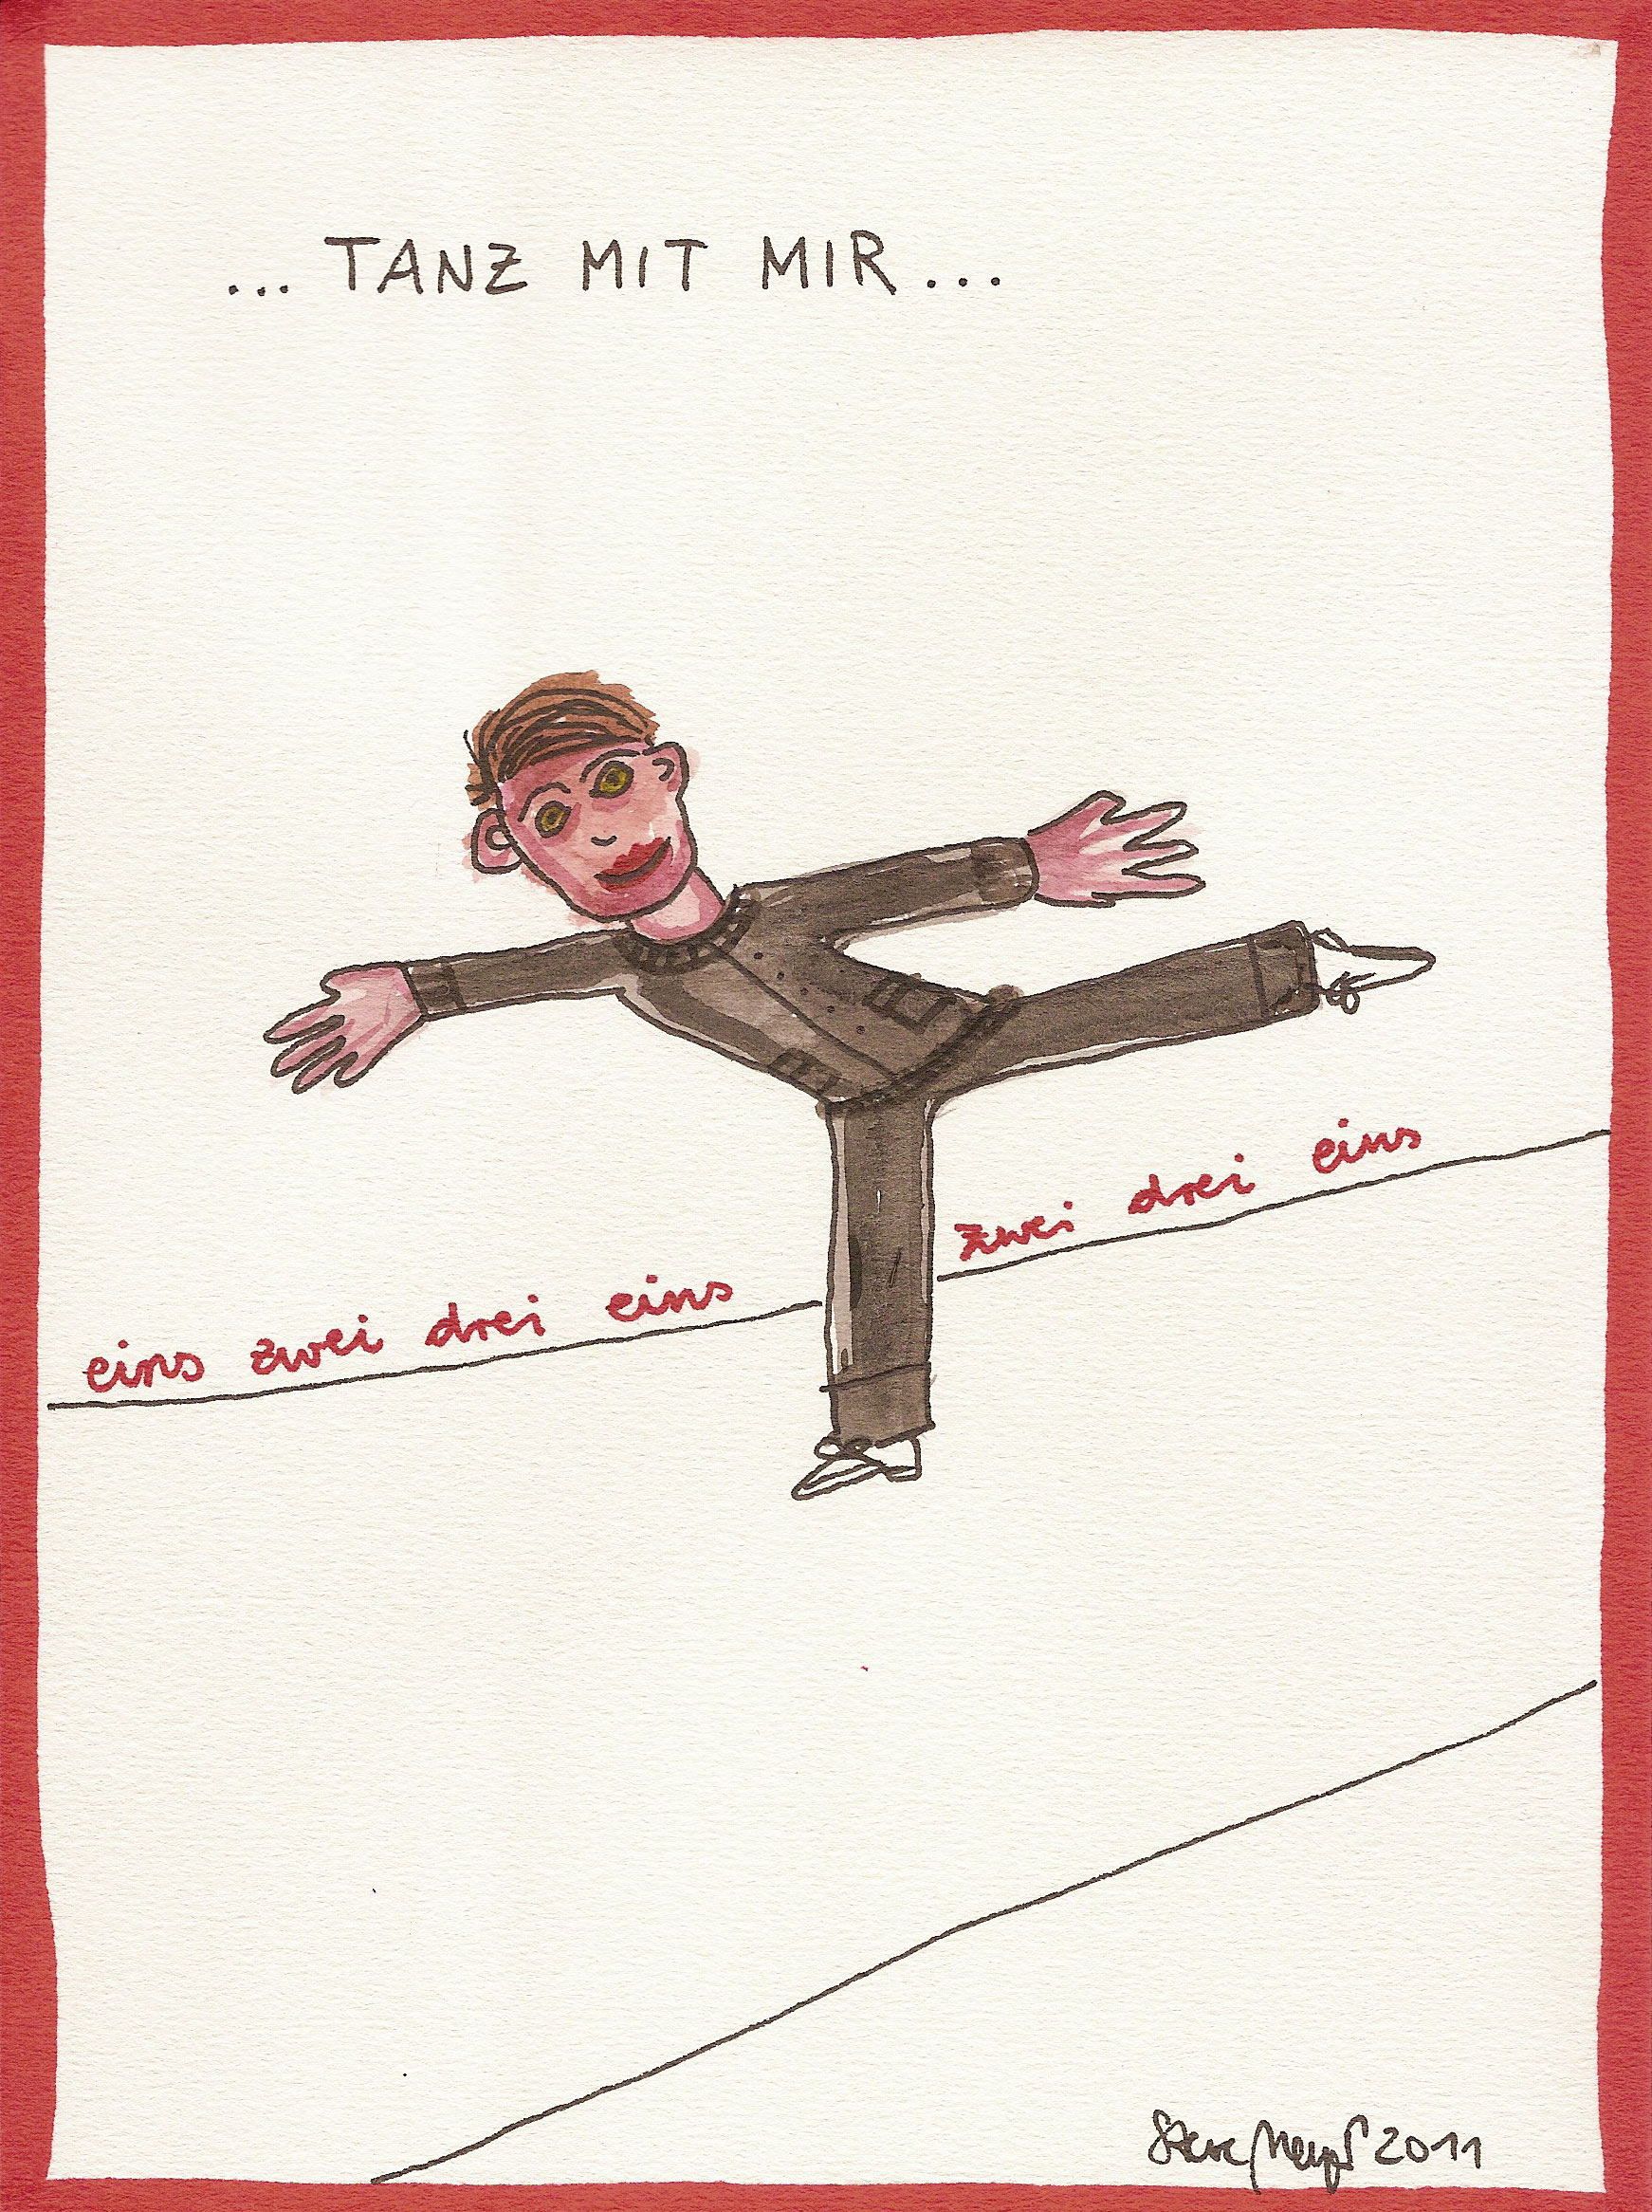 ... TANZ MIT MIR ...
eins zwei drei eins zwei drei eins
2011